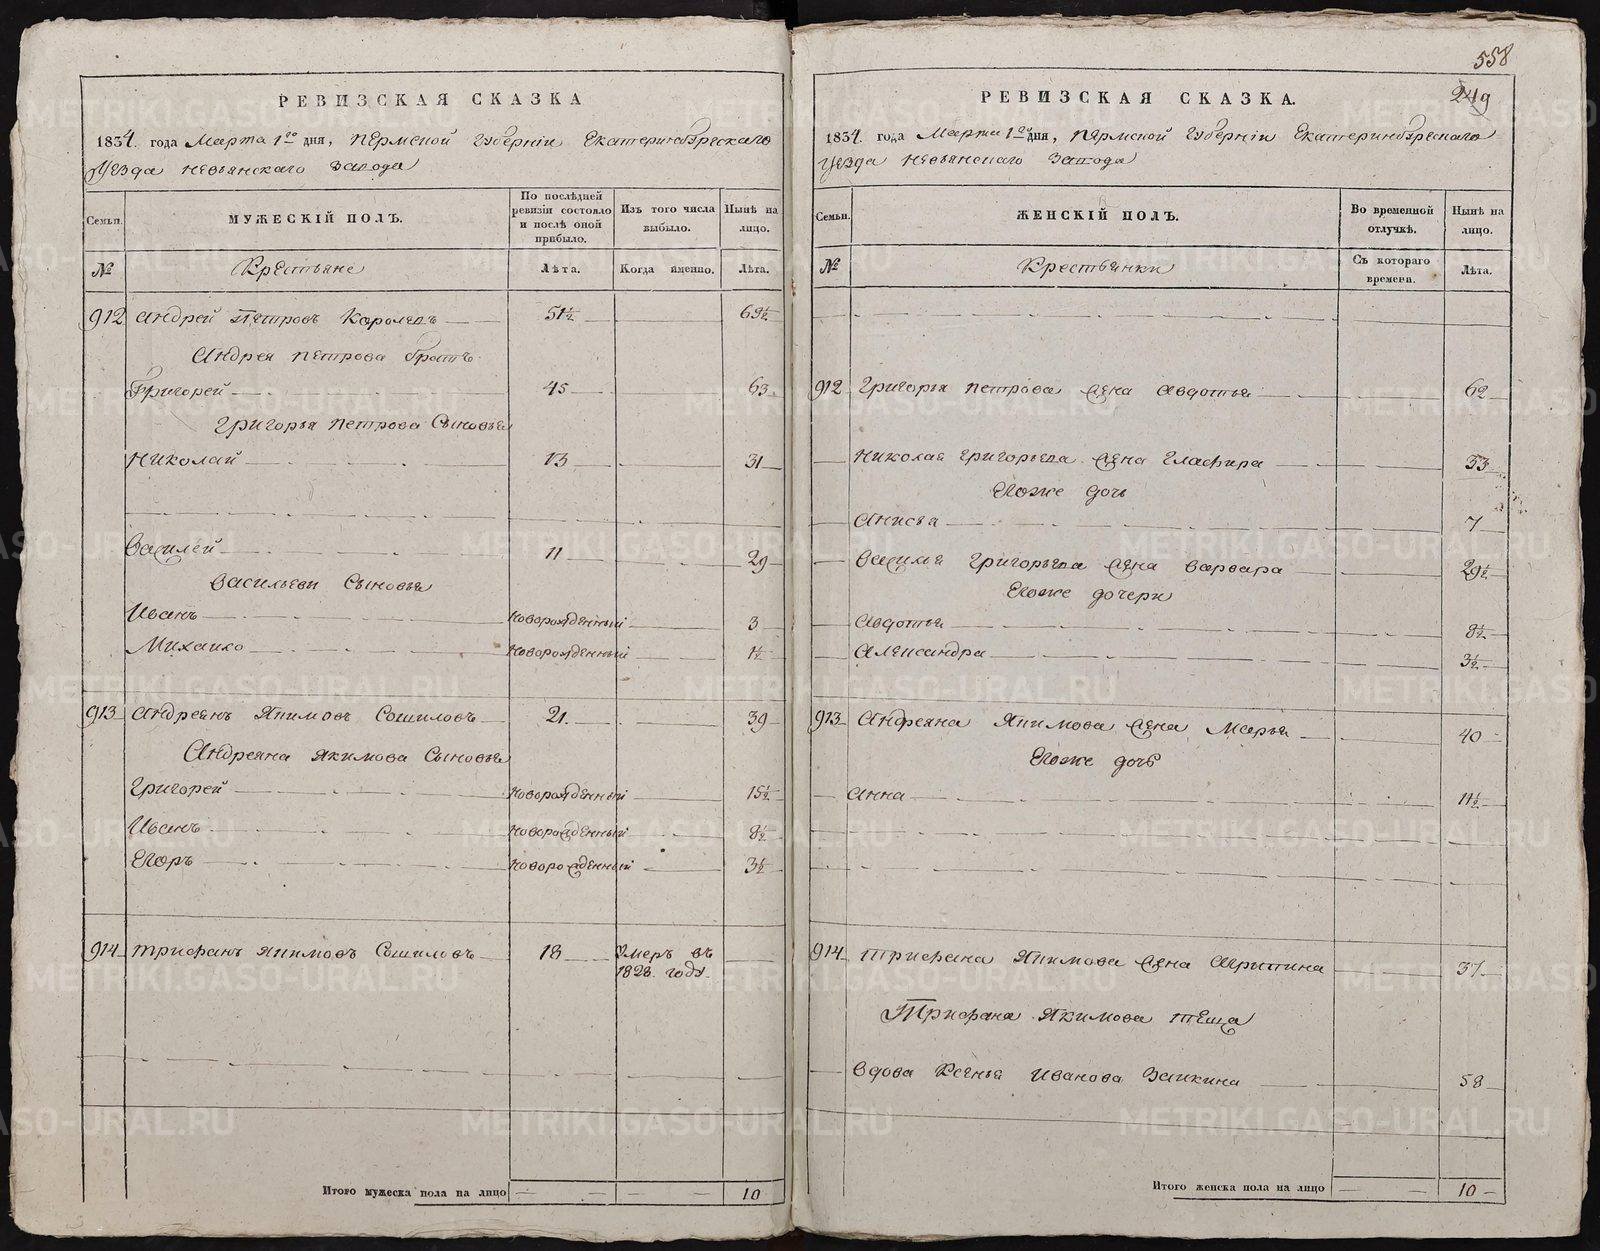 558
249
РЕВИЗСКАЯ СКАЗКА
1834. года Марта 1го дня, Пермской Губерніи Екатеринбургскаго
Уезда Невьянскаго Завода
Семьи.
МУЖЕСКІЙ ПОЛЪ.
По послѣдней ревизіи состояло и послѣ оной прибыло.
Изъ того числа выбыло.
Нынѣ на лицо.
№
Крестьяне
Лѣта.
Когда именно.
Лѣта.
912 Андрей Петровъ Королевъ 51½ 69½
Андрея Петрова братъ
Григорей 45 63
Григорья Петрова Сыновья
Николай 13 31
Василей 11 29
Васильевы Сыновья
Иванъ новорожденный 3
Михайло новорожденный 1½
913 Андреянъ Якимовъ Сошиловъ 21. 39
Андреяна Якимова Сыновья
Григорей новорожденный 15½
Иванъ новорожденный 8½
Егоръ новорожденный 3½
914 Трифанъ Якимовъ Сошиловъ 18 Умеръ въ
1828. году.
Итого мужеска пола на лицо 10
РЕВИЗСКАЯ СКАЗКА.
1834. года Марта 1го дня, Пермской Губерніи Екатеринбургскаго
Уезда Невьянскаго Завода
Семьи.
ЖЕНСКІЙ ПОЛЪ.
Во временной отлучкѣ.
Нынѣ на лицо.
№
Крестьянки
Съ котораго времени.
Лѣта.
912 Григорья Петрова жена Авдотья 62
Николая Григорьева жена Глафира 33
Егоже дочь
Анисья 7
Василья Григорьева жена Варвара 29½
Егоже дочери
Авдотья 8½
Александра 3½
913 Андреяна Якимова жена Марья 40
Егоже дочь
Анна 11½
914 Трифана Якимова жена Агрипина 37
Трифана Якимова теща
Вдова Ксенья Иванова Заикина 58
Итого женска пола на лицо 10
METRIKI.GASO-URAL.RU